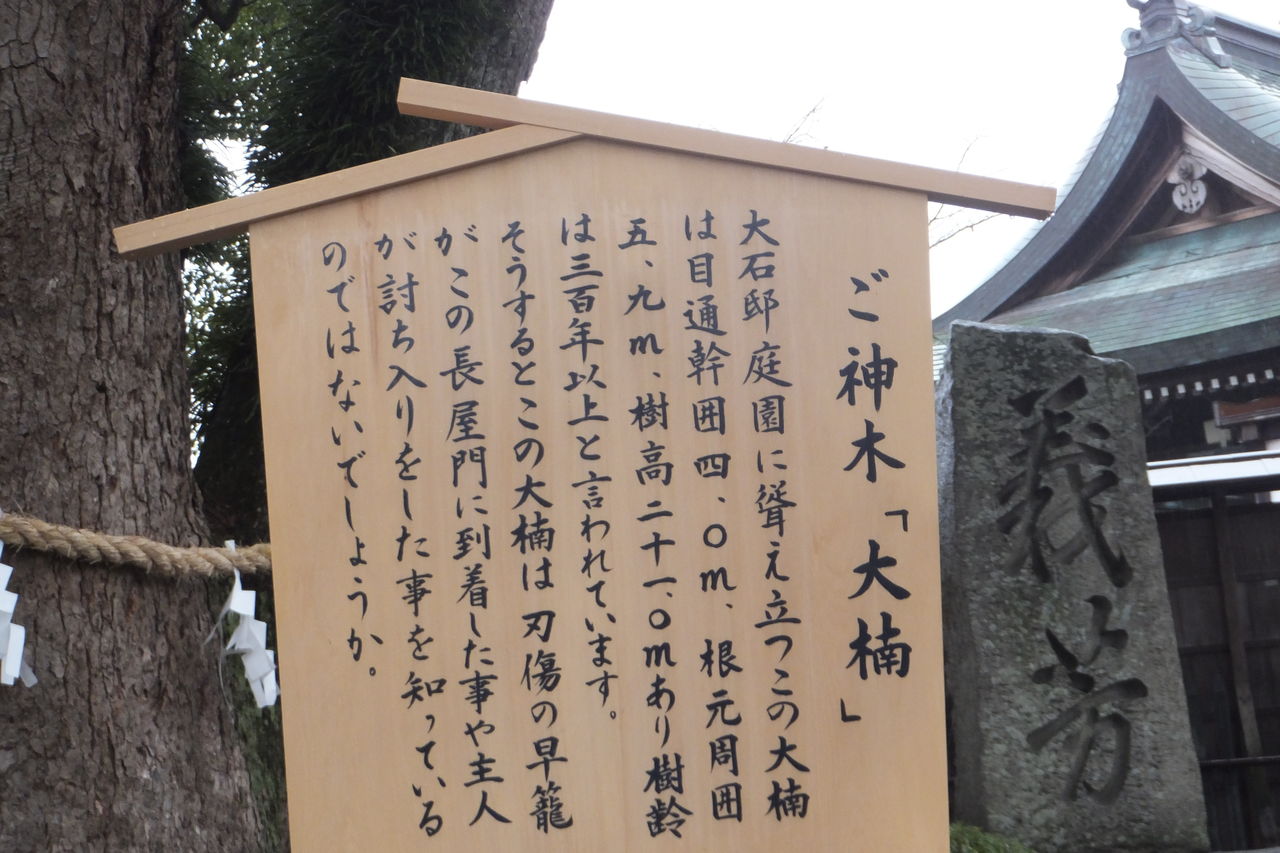 ご神木「大楠」
大石邸庭園に聳え立つこの大楠
は目通幹囲四、〇m、根元周囲
五、九m、樹高二十一、〇mあり樹齢
は三百年以上と言われています。
そうするとこの大楠は刃傷の早籠
がこの長屋門に到着した事や主人
が討ち入りをした事を知っている
のではないでしょうか。
義芳